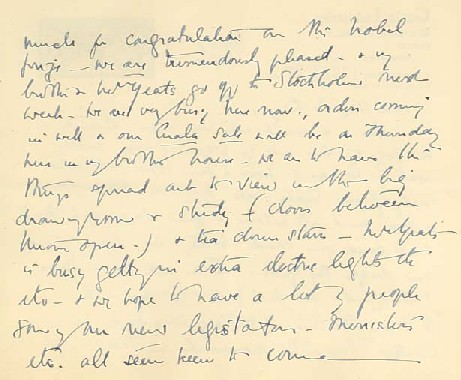 much for congratulation on the Nobel
prize - we are tremendously pleased - & my
brother & Mrs Yeats go off to Stockholm next
week - we are very busy here now, orders coming
in well & our Cuala sale will be on Thursday
here in my brothers house - we are to have the
things spread out to view in the big
drawingroom & study (doors between
thrown open -) & tea down stairs - Mrs Yeats
is busy getting in extra electric lights
etc - & we hope to have a lot of people
some of our new legislators - Ministers
etc. all seem keen to come